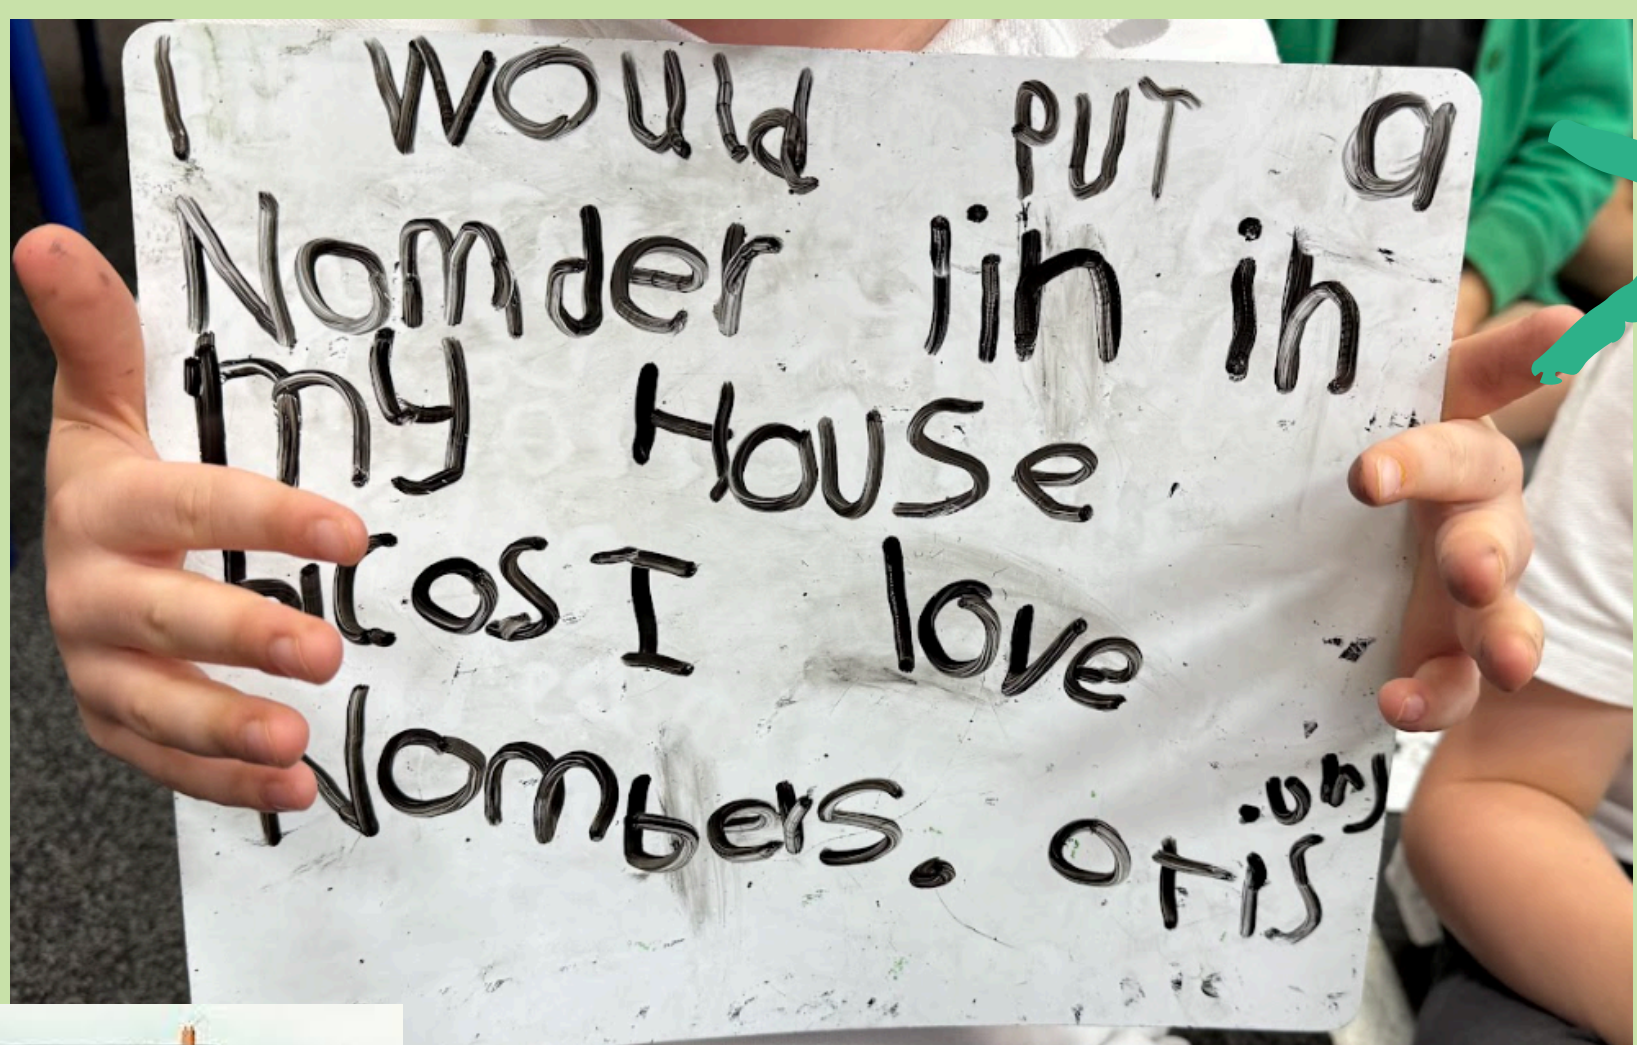 I would PUT a
Nomder lin in
my House
bicos I love
Nombers. otis